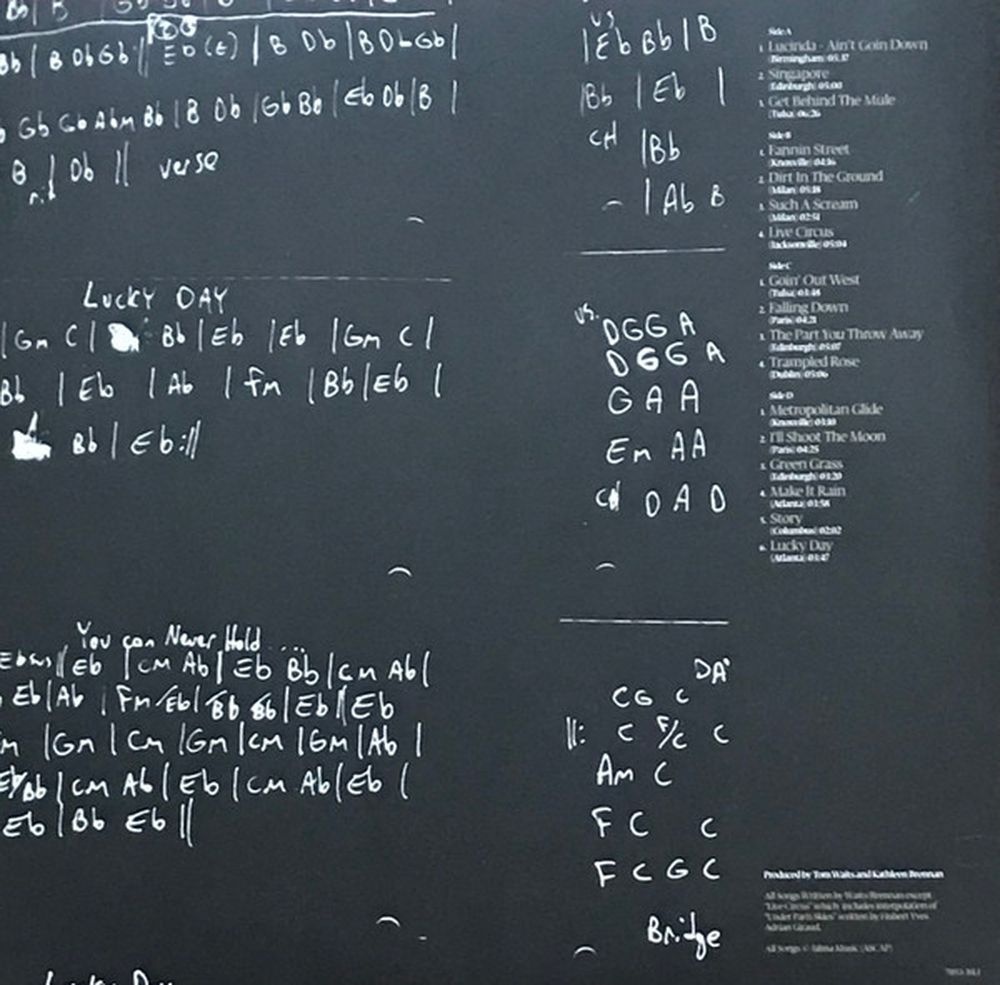 Bb | B Db Gb || Eb (E) | B Db | B Db Gb |
Gb Gb Abm Bb | B Db | Gb Bb | Eb Db | B |
B | Db || verse
rit
Lucky DAY
| Gm C | Bb | Eb | Eb | Gm C |
Bb | Eb | Ab | Fm | Bb | Eb |
Bb | Eb :||
You can Never Hold ...
Ebsus || Eb | Cm Ab | Eb Bb | Cm Ab |
Eb | Ab | Fm Eb | Bb Bb | Eb || Eb
m | Gm | Cm | Gm | Cm | Gm | Ab |
Eb/Bb | Cm Ab | Eb | Cm Ab | Eb |
Eb | Bb Eb ||
Lucky Day
VS
| Eb Bb | B
| Bb | Eb |
CH | Bb
| Ab B
VS.
D G G A
D G G A
G A A
Em A A
CH D A D
DA
C G C
||: C F/C C
Am C
F C C
F C G C
Bridge
Side A
1. Lucinda - Ain't Goin Down
(Birmingham) 05:37
2. Singapore
(Edinburgh) 05:00
3. Get Behind The Mule
(Tulsa) 06:26
Side B
1. Fannin Street
(Knoxville) 04:16
2. Dirt In The Ground
(Milan) 05:18
3. Such A Scream
(Milan) 02:51
4. Live Circus
(Jacksonville) 05:04
Side C
1. Goin' Out West
(Tulsa) 03:48
2. Falling Down
(Paris) 04:21
3. The Part You Throw Away
(Edinburgh) 05:07
4. Trampled Rose
(Dublin) 05:06
Side D
1. Metropolitan Glide
(Knoxville) 03:10
2. I'll Shoot The Moon
(Paris) 04:25
3. Green Grass
(Edinburgh) 03:20
4. Make It Rain
(Atlanta) 03:58
5. Story
(Columbus) 02:02
6. Lucky Day
(Atlanta) 03:47
Produced by Tom Waits and Kathleen Brennan
All Songs Written by Waits/Brennan except
"Live Circus" which includes interpolation of
"Under Paris Skies" written by Hubert Yves
Adrian Giraud.
All Songs © Jalma Music (ASCAP)